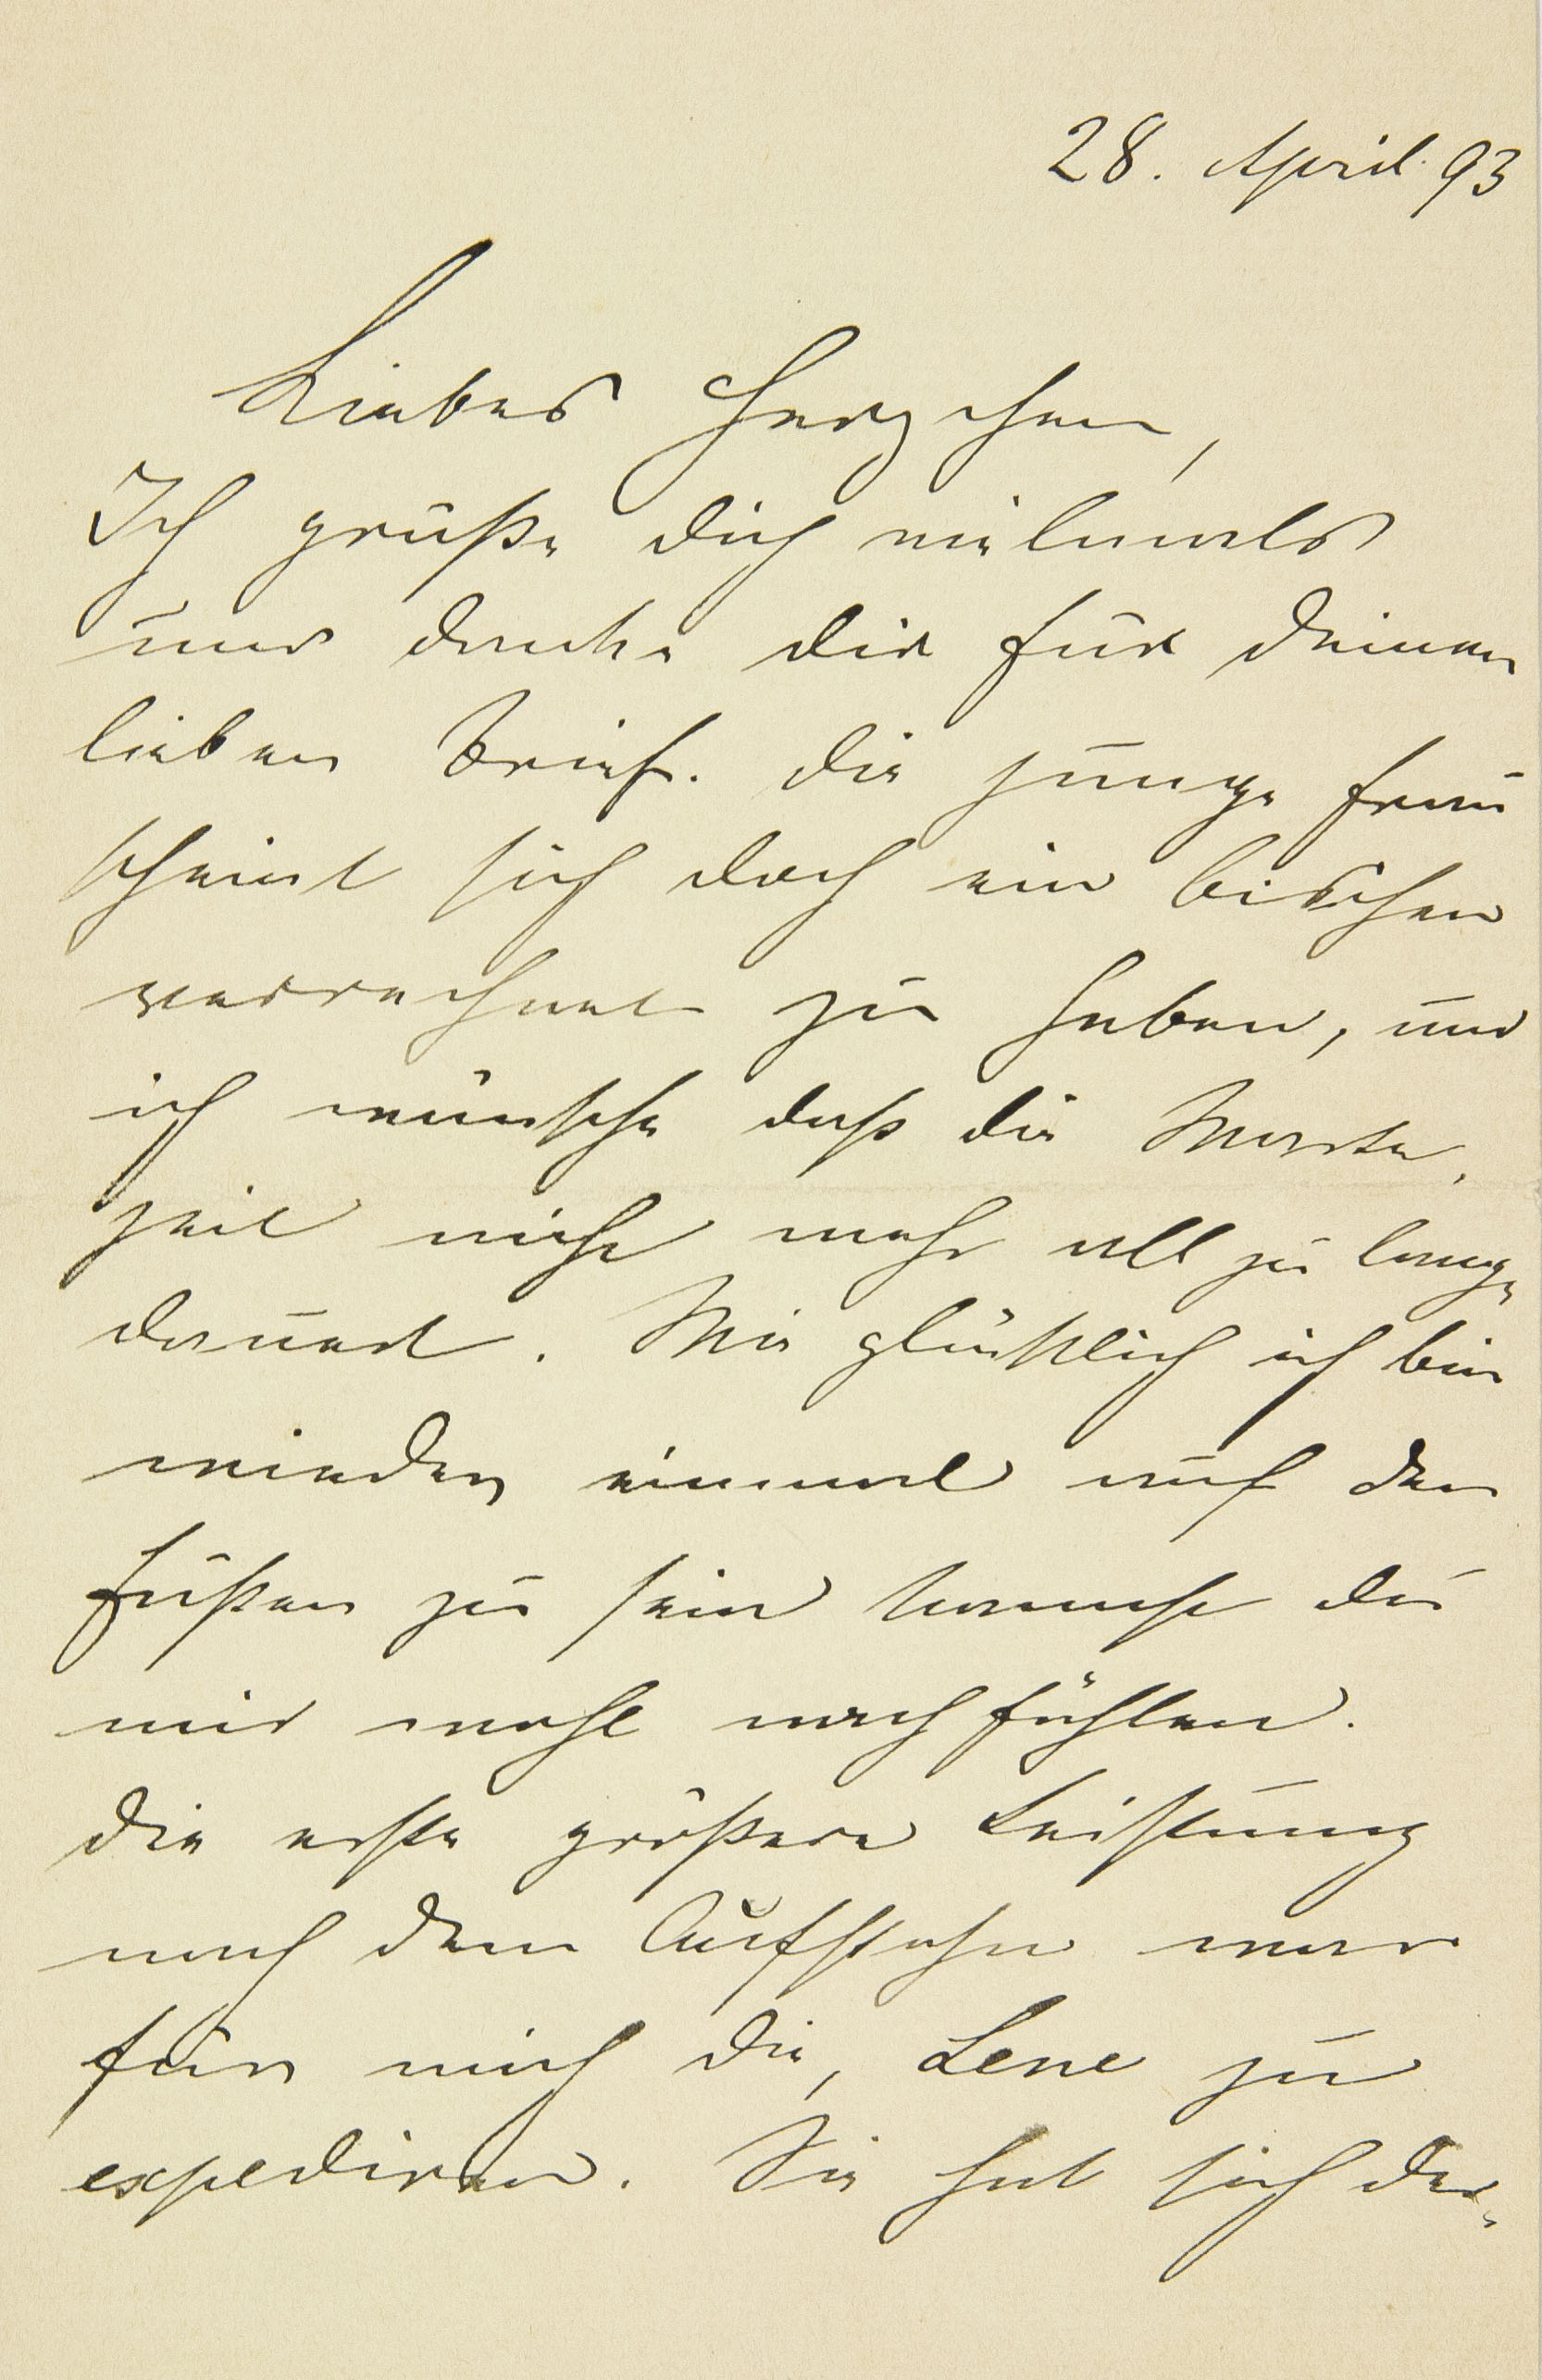 28. April 93
Liebes Herzchen,
Ich grüße dich vielmals
und danke dir für deinen
lieben Brief. Die junge Frau
scheint sich doch ein bischen
verrechnet zu haben, und
ich wünsche daß die Warte,
zeit nicht mehr all zu lange
dauert. Wie glücklich ich bin
wieder einmal auf den
Füßen zu sein kannst du
mir wohl nachfühlen.
Die erste größere Leistung
nach dem Aufstehn war
für mich die, Lene zu
expediren. Sie hat sich der-